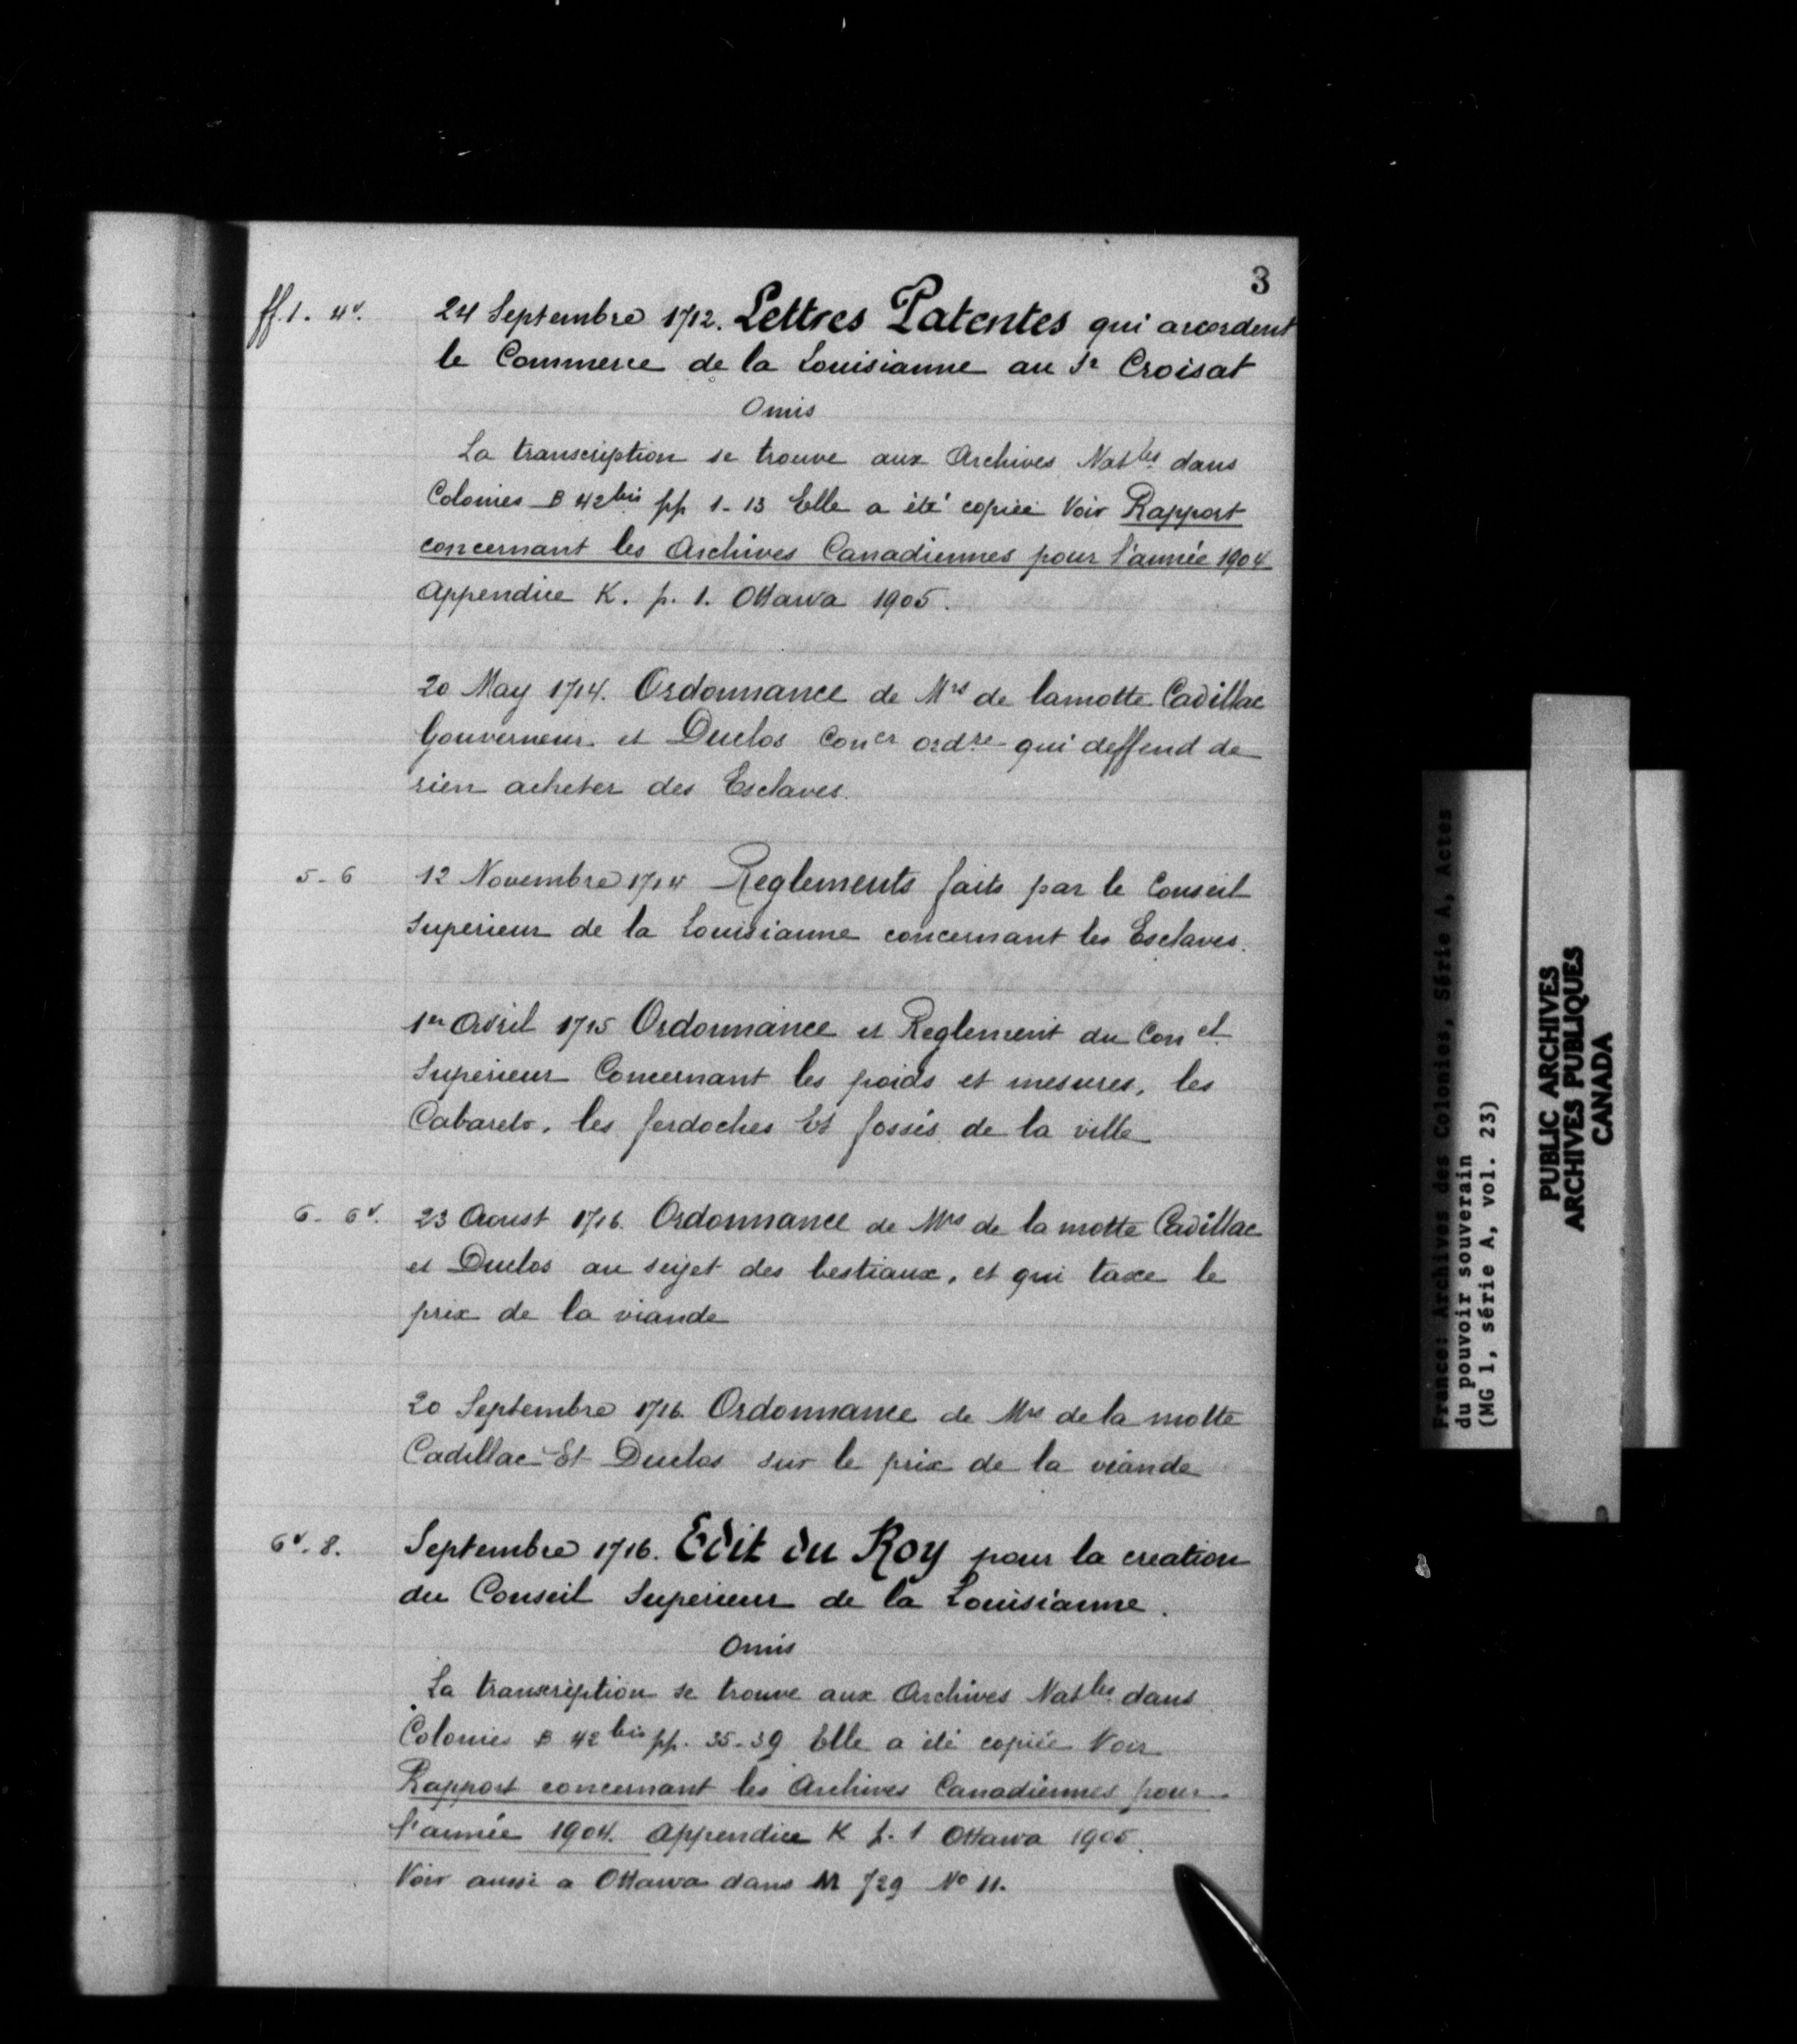 3
ff. 1. 4v. 24 Septembre 1712. Lettres Patentes qui accordent
le Commerce de la Louisianne au Sr Croisat
Omis
La transcription se trouve aux Archives Natles dans
Colonies B 42bis pp 1-13 Elle a été copiée Voir Rapport
concernant les Archives Canadiennes pour l'année 1904
Appendice K. p. 1. Ottawa 1905.
20 May 1714. Ordonnance de Mrs de lamotte Cadillac
Gouverneur et Duclos Concr ordre qui deffend de
rien acheter des Esclaves.
5-6 12 Novembre 1714 Reglements faits par le Conseil
Superieur de la Louisianne concernant les Esclaves.
1er Avril 1715 Ordonnance et Reglement du Con el
Superieur Concernant les poids et mesures, les
Cabarets, les ferdoches Et fossés de la ville
6-6v. 23 Aoust 1716. Ordonnance de Mrs de la motte Cadillac
et Duclos au sujet des bestiaux, et qui taxe le
prix de la viande
20 Septembre 1716. Ordonnance de Mrs de la motte
Cadillac Et Duclos sur le prix de la viande
6v.8. Septembre 1716. Edit du Roy pour la creation
du Conseil Superieur de la Louisianne.
Omis
La transcription se trouve aux Archives Natles dans
Colonies B 42bis pp. 35-39 Elle a été copiée Voir
Rapport concernant les Archives Canadiennes pour
l'année 1904. Appendice K p. 1 Ottawa 1905.
Voir aussi a Ottawa dans M 729 No 11.
France: Archives des Colonies, Série A, Actes
du pouvoir souverain
(MG 1, série A, vol. 23)
PUBLIC ARCHIVES
ARCHIVES PUBLIQUES
CANADA